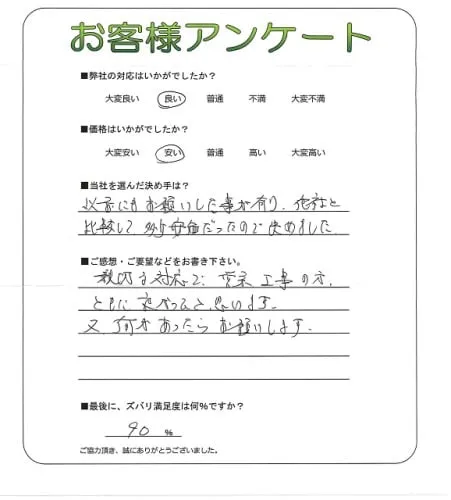 お客様アンケート
■弊社の対応はいかがでしたか？
大変良い 良い 普通 不満 大変不満
■価格はいかがでしたか？
大変安い 安い 普通 高い 大変高い
■当社を選んだ決め手は？
以前にもお願いした事が有り、他社と
比較して、多少安価だったので決めました。
■ご感想・ご要望などをお書き下さい。
親切な対応で、営業、工事の方、
ともに良かったと思います。
又、何かあったらお願いします。
■最後に、ズバリ満足度は何%ですか？
90 %
ご協力頂き、誠にありがとうございました。